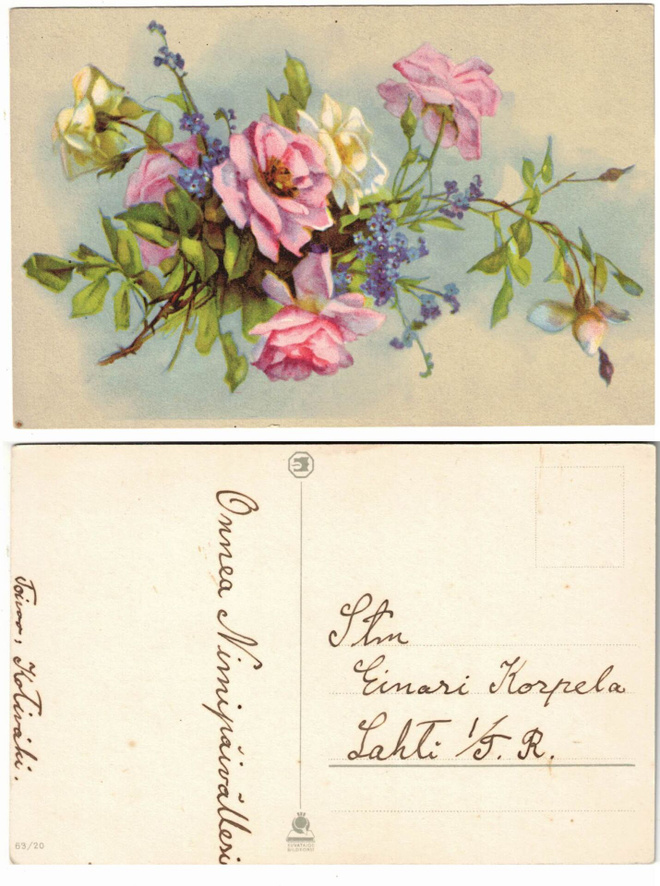 Onnea Nimipäivällesi
Toivoo, Kotiväki.
Stm
Einari Korpela
Lahti 1/T. R.
63/20